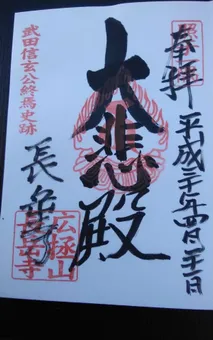 奉拝
平成二十年四月二十一日
大悲殿
武田信玄公終焉史跡
長岳寺
広拯山
長岳寺